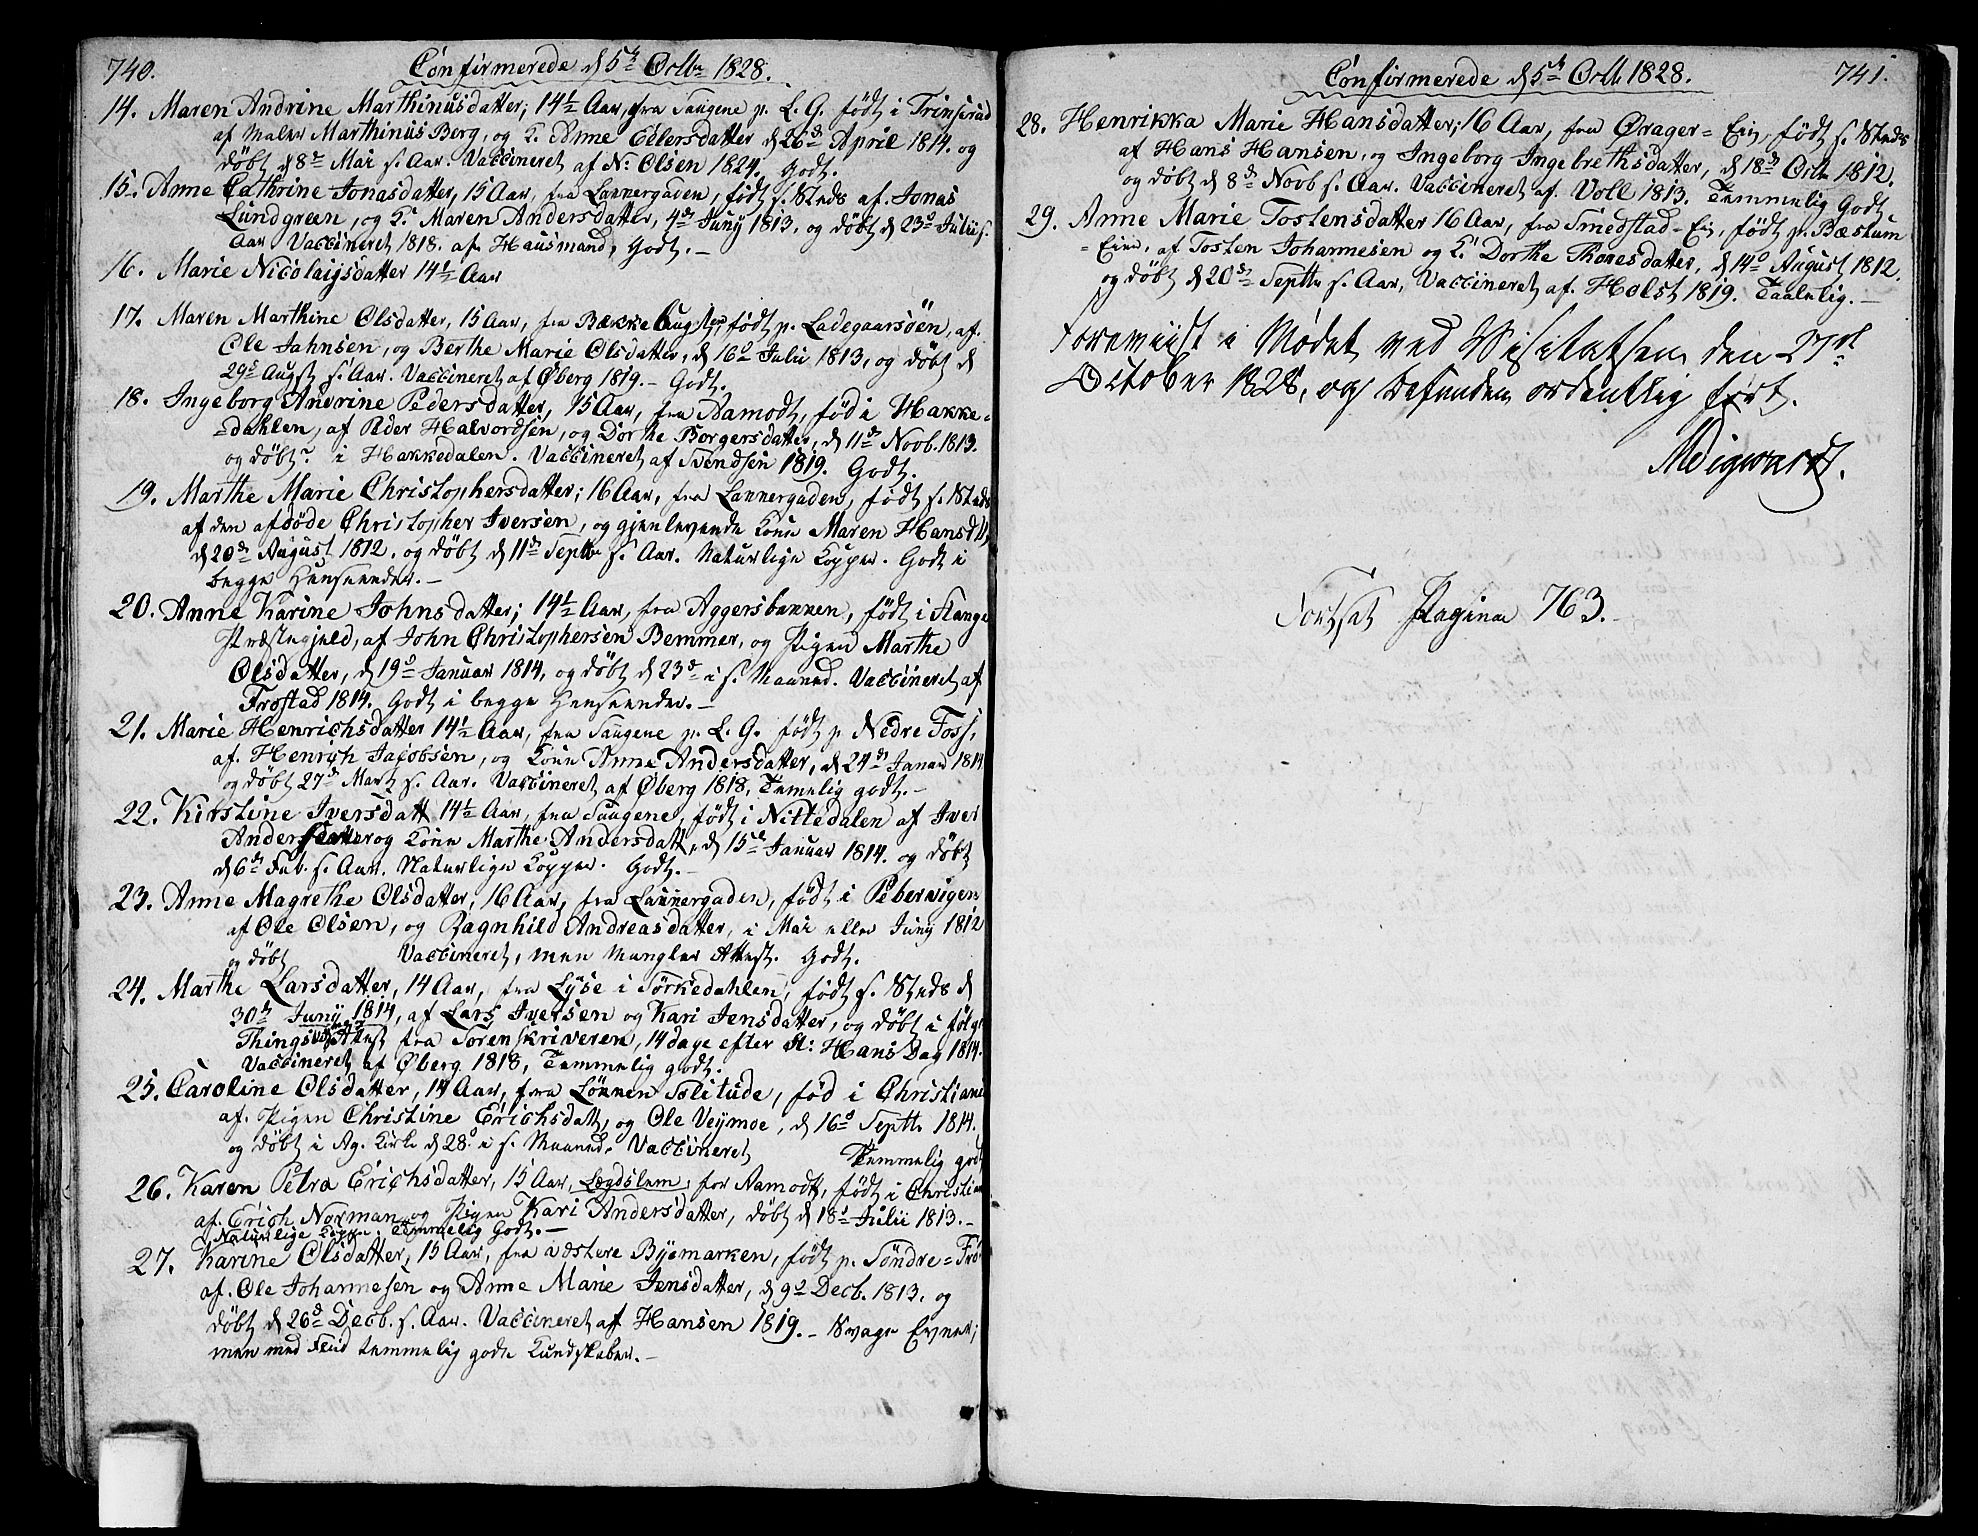 740. Confirmerede d 5te Octbr 1828.
14. Maren Andrine Marthinusdatter; 14½ Aar, fra Saugene p. L. G. født i Trinserad
af Maler Marthinus Berg, og K. Anne Eilersdatter d 26de April 1814. og
døbt d 8de Mai s. Aar. Vaccineret af N: Olsen 1824. Godt.
15. Anne Cathrine Jonasdatter, 15 Aar, fra Lannergaden, født s. Steds af Jonas
Lundgreen, og K. Maren Andersdatter, 4de Juny 1813, og døbt d 23de Julii s.
Aar Vaccineret 1818. af Hausmand, Godt.–
16. Marie Nicolaijsdatter 14½ Aar
17. Maren Marthine Olsdatter, 15 Aar, fra Bækkebugten, født p. Ladegaarsöen, af.
Ole Jahnsen, og Berthe Marie Olsdatter, d 16de Julii 1813, og døbt d
29de Augst s. Aar. Vaccineret af Øberg 1819.– Godt.
18. Ingeborg Andrine Pedersdatter, 15 Aar, fra Aamodt, fød i Hakke=
=dahlen, af Peder Halvordsen, og Dorthe Borgersdatter, d 11de Novb. 1813.
og døbt? i Hakkedalen. Vaccineret af Svendsen 1819. Godt.
19. Marthe Marie Christophersdatter; 16 Aar, fra Lannergaden, født s. Steds
af den afdöde Christopher Iversen, og gjenlevende Kone Maren Hansdtt,
d 20de August 1812. og døbt d 11de Septbr s. Aar. Naturlige Kopper. Godt i
begge Henseender.–
20. Anne Karine Johnsdatter; 14½ Aar, fra Aggersbannen, født i Stange
Præstegjeld, af John Christophersen Bemmer, og Pigen Marthe
Olsdatter, d 19de Januar 1814, og døbt d 23de i s. Maaned. Vaccineret af
Frostad 1814. Godt i begge Henseender.–
21. Marie Henrichsdatter 14½ Aar, fra Saugene p. L. G. født p Nedre Foss,
af. Henrich Jacobsen, og Kone Anne Andersdatter, d 24de Januar 1814
og døbt 27de Martz s. Aar. Vaccineret af Øberg 1818, Temelig godt.–
22. Kirstine Iversdatt 14½ Aar, fra Saugene, født i Nittedalen af Iver
Andersen og Kone Marthe Andersdatt, d 15de Januar 1814. og døbt
d 6te Feb. s. Aar. Naturlige Kopper. Godt.–
23. Anne Magrethe Olsdatter, 16 Aar, fra Lannergaden, født i Pebervigen
af Ole Olsen, og Ragnhild Andreasdatter, i Mai eller Juny 1812
og døbt Vaccineret, men mangler Attest. Godt.
24. Marthe Larsdatter, 14 Aar, fra Lyse i Sörkedahlen, født s. Steds d
30te Juny 1814, af Lars Iversen og Kari Jensdatter, og døbt i følge
Thingsvidne Attest fra Sorenskriveren, 14 dage efter St: Hans Dag 1814.
Vaccineret af Øberg 1818, Temmelig godt.
25. Caroline Olsdatter, 14 Aar, fra Lönnen Solitude, fød i Christiania
af. Pigen Christine Erichsdatt, og Ole Veymoe, d 16de Septbr 1814.
og døbt i Ag. Kirke d 28de i s. Maaned. Vaccineret Temmelig godt
26. Karen Petra Erichsdatter, 15 Aar, Lægdslem for Aamodt, født i Christian
af. Erich Norman og Pigen Kari Andersdatter, døbt d 18de Julii 1813.–
Naturlige Kopper. Temmelig Godt.–
27. Karine Olsdatter, 15 Aar, fra vestere Byemarken, født p. Söndre=Frö
af. Ole Johannesen og Anne Marie Jensdatter, d 9de Decb. 1813. og
døbt d 26de Decb. s. Aar. Vaccineret af Hansen 1819.– Svage Evner;
men med Flid temmelig gode Kundskaber.–
Confirmerede d 5te Octb 1828. 741.
28. Henrikka Marie Hansdatter; 16 Aar, fra Ørager=Eie, født s. Steds
af Hans Hansen, og Ingeborg Ingebrethsdatter, d 18de Octbr 1812.
og døbt d 8de Novb s. Aar. Vaccineret af. Voll 1813. Temmelig Godt
29. Anne Marie Tostensdatter 16 Aar, fra Smedstad-Eie, født p. Bæstum
=Eie, af Tosten Johannesen og K. Dorthe Thoresdatter, d 14de August 1812.
og døbt d 20de Septbr s. Aar, Vaccineret af. Holst 1819. Taalelig.–
Foreviist i Mødet ved Visitatsen den 27de
October 1828, og befunden ordentlig ført.
Fortsat Pagina 763.